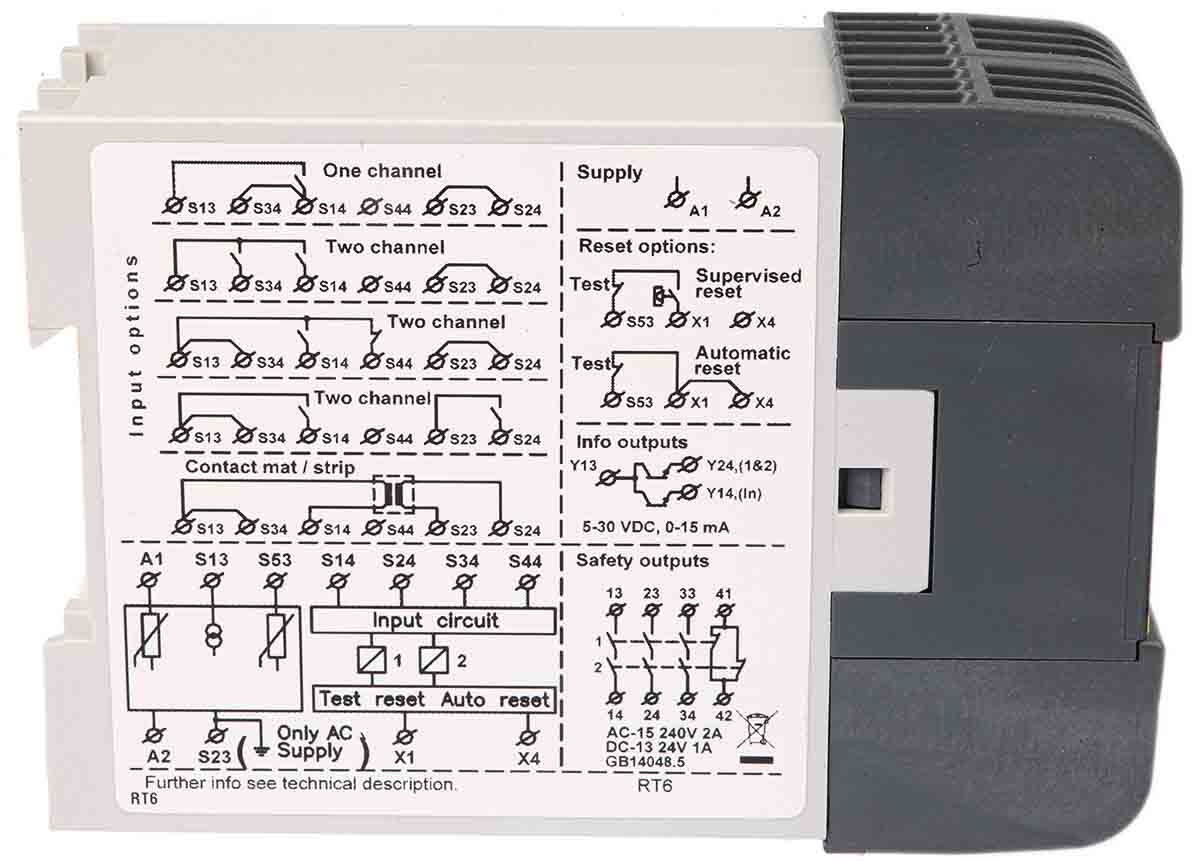 Input options
One channel
S13 S34 S14 S44 S23 S24
Two channel
S13 S34 S14 S44 S23 S24
Two channel
S13 S34 S14 S44 S23 S24
Two channel
S13 S34 S14 S44 S23 S24
Contact mat / strip
S13 S34 S14 S44 S23 S24
A1 S13 S53 S14 S24 S34 S44
Input circuit
1 2
Test reset Auto reset
A2 S23 ( Only AC
Supply ) X1 X4
Further info see technical description.
RT6
Supply
A1 A2
Reset options:
Test Supervised
reset
S53 X1 X4
Test Automatic
reset
S53 X1 X4
Info outputs
Y13 Y24,(1&2)
Y14,(In)
5-30 VDC, 0-15 mA
Safety outputs
13 23 33 41
1
2
14 24 34 42
AC-15 240V 2A
DC-13 24V 1A
GB14048.5
RT6